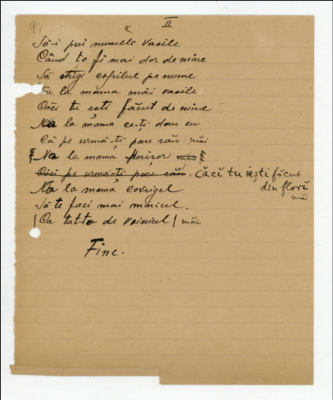 II
Să-i pui numele Vasile
Când to fi mai dor de mine
Să strigi copilul pe nume
Nu la mama măi Vasile
Căci tu ești făcut de mine
Na la mama ce-ți dau eu
Că pe urmă-ți pare rău măi
Na la mama florișor măi
Căci pe urmă-ți pare rău. Căci tu iești făcut
din flori
măi
Na la mamă covrigel
Să te faci mai minicul.
(Ca tat-to de voinicul) măi
Fine.